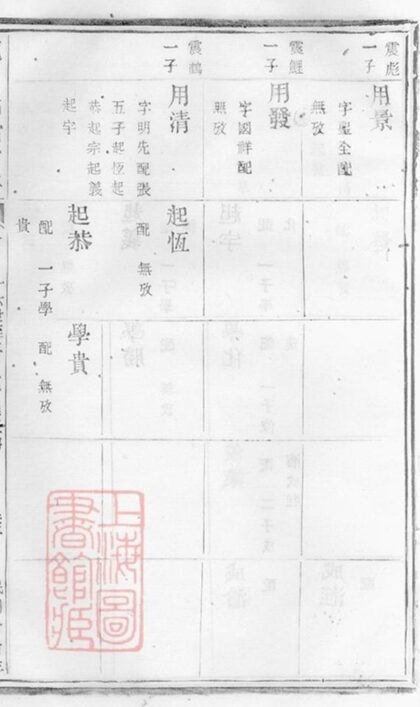 震彪
一子
用景
字聖全配
無攷
震鯉
一子
用發
字國詳配
無攷
震鶴
一子
用清
字明先配張
五子起恆起
恭起宗起義
起宇
起恆
配 無攷
起恭
配 一子學
貴
學貴
配 無攷
上海圖
書館藏